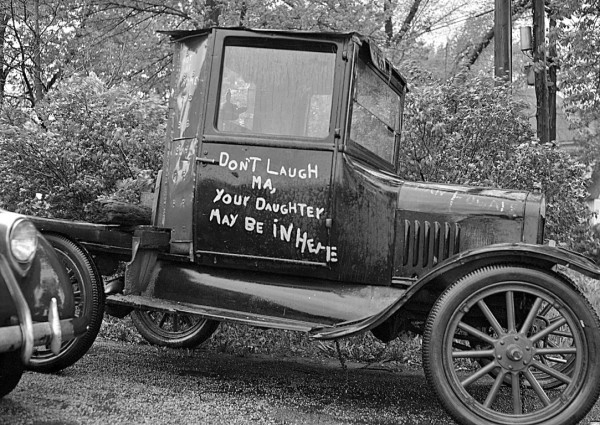 DON'T LAUGH
MA,
YOUR DAUGHTER
MAY BE IN HERE